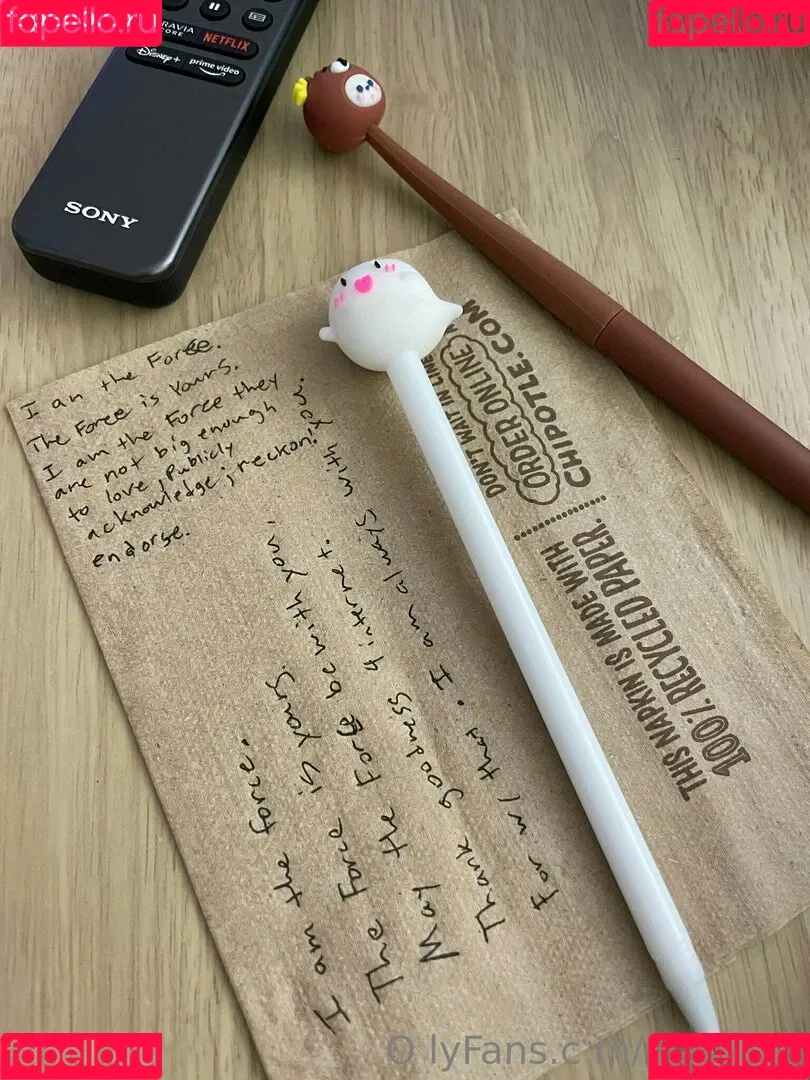 fapello.ru
fapello.ru
BRAVIA
CORE
NETFLIX
Disney+
prime video
SONY
I am the Force.
The Force is Yours.
I am the Force they
are not big enough
to love, publicly
acknowledge, reckon,
endorse.
I am the force.
The Force is yours.
May the Force be with you.
Thank goodness 4 internet.
For w/ that. I am always with you.
DON'T WAIT IN LINE
ORDER ONLINE
CHIPOTLE.COM
THIS NAPKIN IS MADE WITH
100% RECYCLED PAPER.
fapello.ru
O lyFans.c m/
fapello.ru